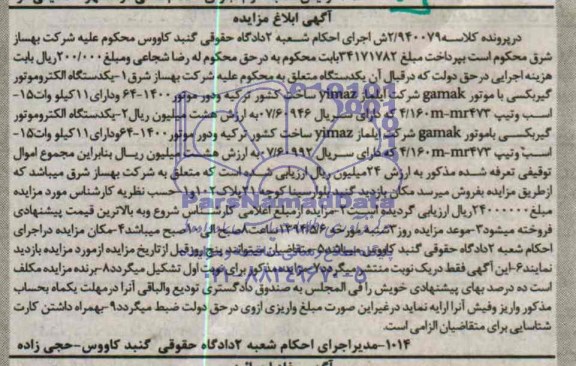 آگهی ابلاغ مزایده
درپرونده کلاسه ۲/۹۴۰۰۷۹ش اجرای احکام شعبه ۲دادگاه حقوقی گنبد کاووس محکوم علیه شرکت بهساز
شرق محکوم است بپرداخت مبلغ ۳۴۱۷۱۷۸۲بابت محکوم به درحق محکوم له رضا شجاعی ومبلغ ۲۰۰/۰۰۰ریال بابت
هزینه اجرایی درحق دولت که درقبال آن یکدستگاه متعلق به محکوم علیه شرکت بهساز شرق۱-یکدستگاه الکتروموتور
گیربکسی با موتور gamak شرکت ایلماز yimaz ساخت کشور ترکیه ودور موتور ۱۴۰۰-۶۴ودارای۱۱کیلو وات۱۵-
اسب وتیپ m-mr۴۷۳-۴/۱۶۰ که دارای سریال ۰۷/۶۰۹۴۶به ارزش هشت میلیون ریال۲-یکدستگاه الکتروموتور
گیربکسی باموتور gamak شرکت ایلماز yimaz ساخت کشور ترکیه ودور موتور ۱۴۰۰-۶۴ودارای۱۱کیلو وات۱۵-
اسب وتیپ m-mr۴۷۳-۴/۱۶۰ که دارای سریال ۰۷/۶۰۹۹۲به ارزش هشت میلیون ریال بنابراین مجموع اموال
توقیفی تعرفه شده مذکور به ارزش ۲۴میلیون ریال ارزیابی شده است که متعلق به شرکت بهساز شرق میباشد که
ازطریق مزایده بفروش میرسد مکان بازدید گنبد بلوار سینا کوچه ۲۱پلاک ۱۰۲و۱- حسب نظریه کارشناس مورد مزایده
مبلغ ۲۴۰۰۰۰۰۰ریال ارزیابی گردیده است۲-مزایده ازمبلغ اعلامی کارشناس شروع وبه بالاترین قیمت پیشنهادی
فروخته میشود۳-موعد مزایده روز شنبه مورخه ۱۳۹۴/۵/ ساعت ۸صبح الی صبح میباشد۴-مکان مزایده دراجرای
احکام شعبه ۲دادگاه حقوقی گنبد کاووس میباشد۵-متقاضیان میتوانند پنج روزقبل ازتاریخ مزایده ازمورد مزایده بازدید
نمایند۶-این آگهی فقط دریک نوبت منتشر میگردد۷- مزایده مذکور برای نوبت اول تشکیل میگردد۸-برنده مزایده مکلف
است ده درصد بهای پیشنهادی خویش را فی المجلس به صندوق دادگستری تودیع والباقی آنرا درمهلت یکماه بحساب
مذکور واریز وفیش آنرا ارایه نماید درغیراین صورت مبلغ واریزی ازوی درحق دولت ضبط میگردد۹-بهمراه داشتن کارت
شناسایی برای متقاضیان الزامی است.
۱۰۱۴-مدیراجرای احکام شعبه ۲دادگاه حقوقی گنبد کاووس-حجی زاده
ParsNamadData